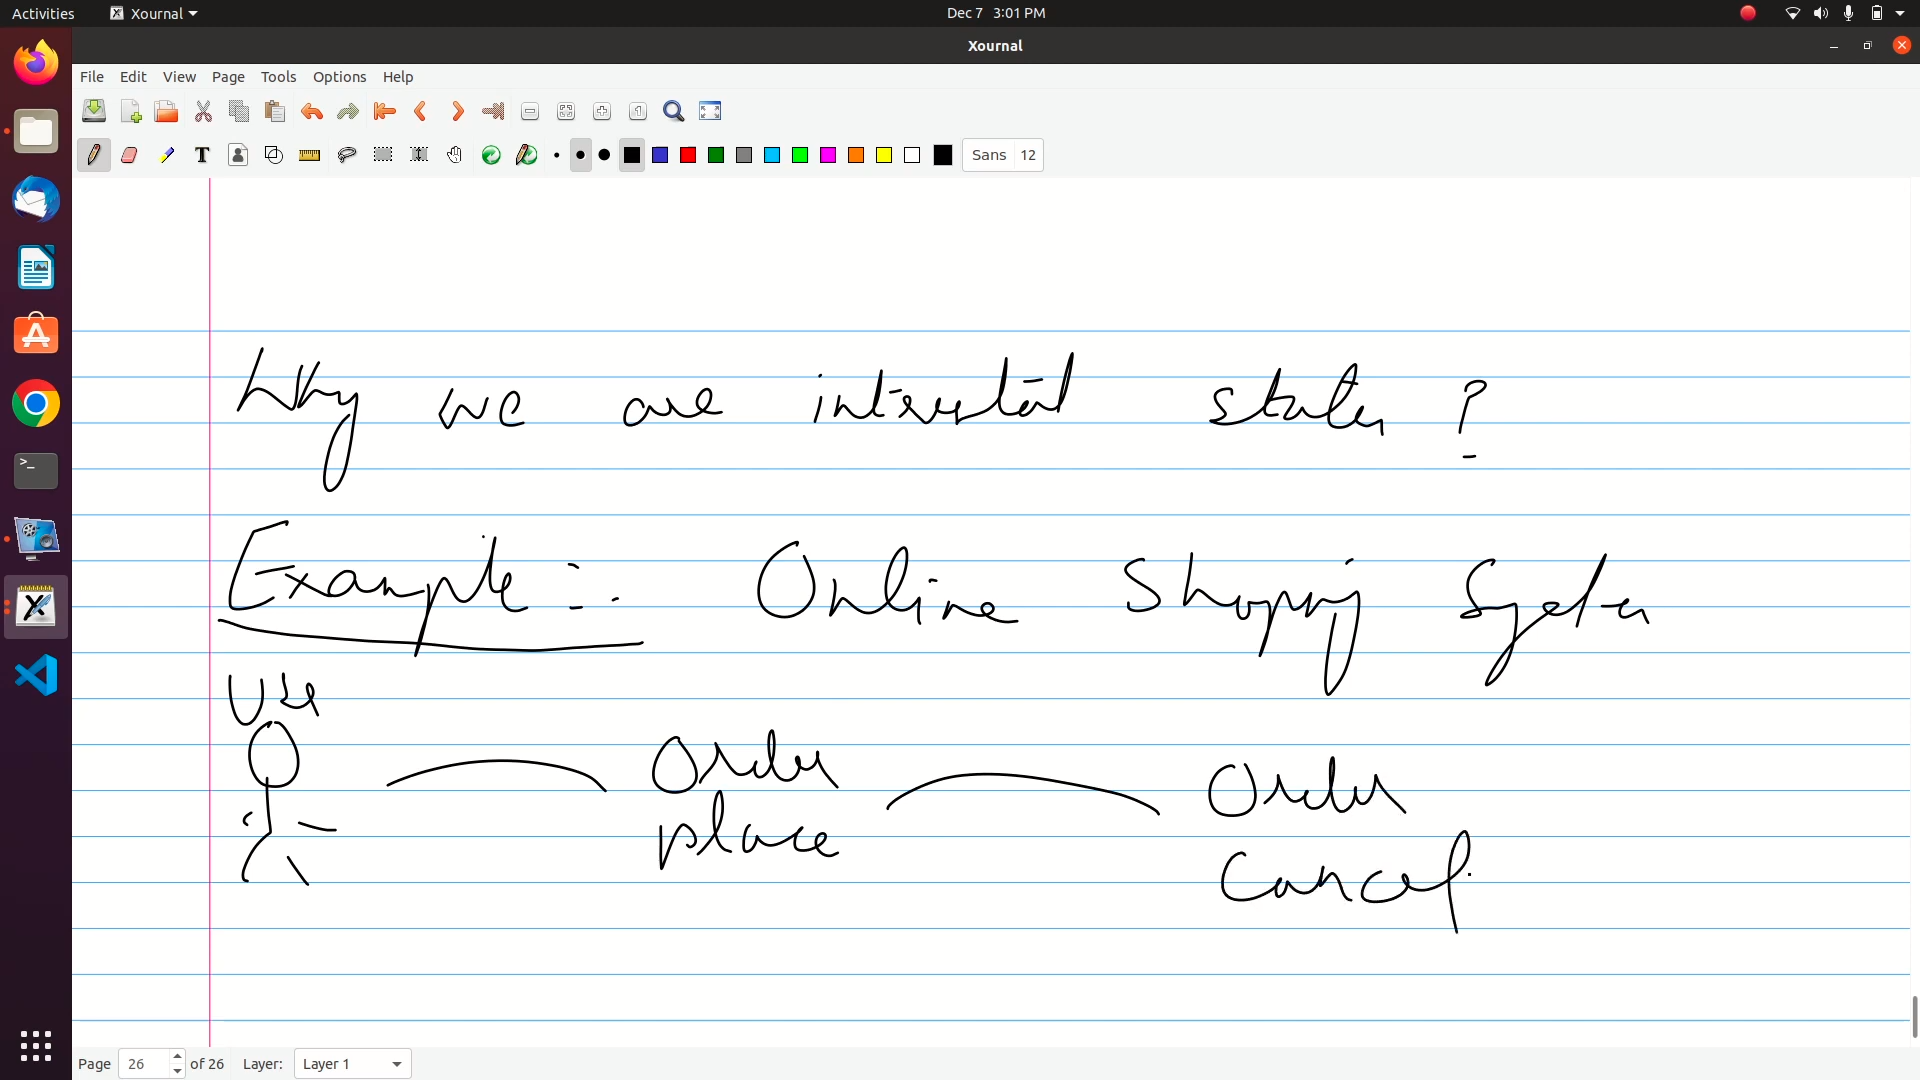 Activities Xournal Dec 7 3:01 PM
Xournal
File Edit View Page Tools Options Help
Sans 12
Why we are interested states ?
Example :- Online Shopping System
User
Order Order
place Cancel
Page 26 of 26 Layer: Layer 1